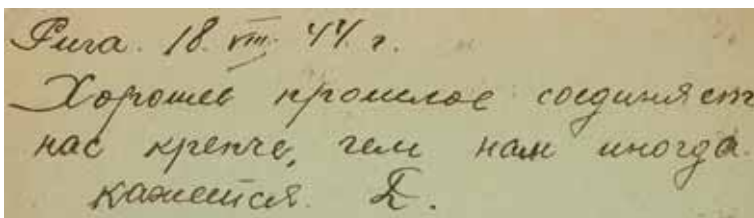 Рига. 18. VIII. 44. г.
Хорошее прошлое соединяет
нас крепче, чем нам иногда
кажется. Е.